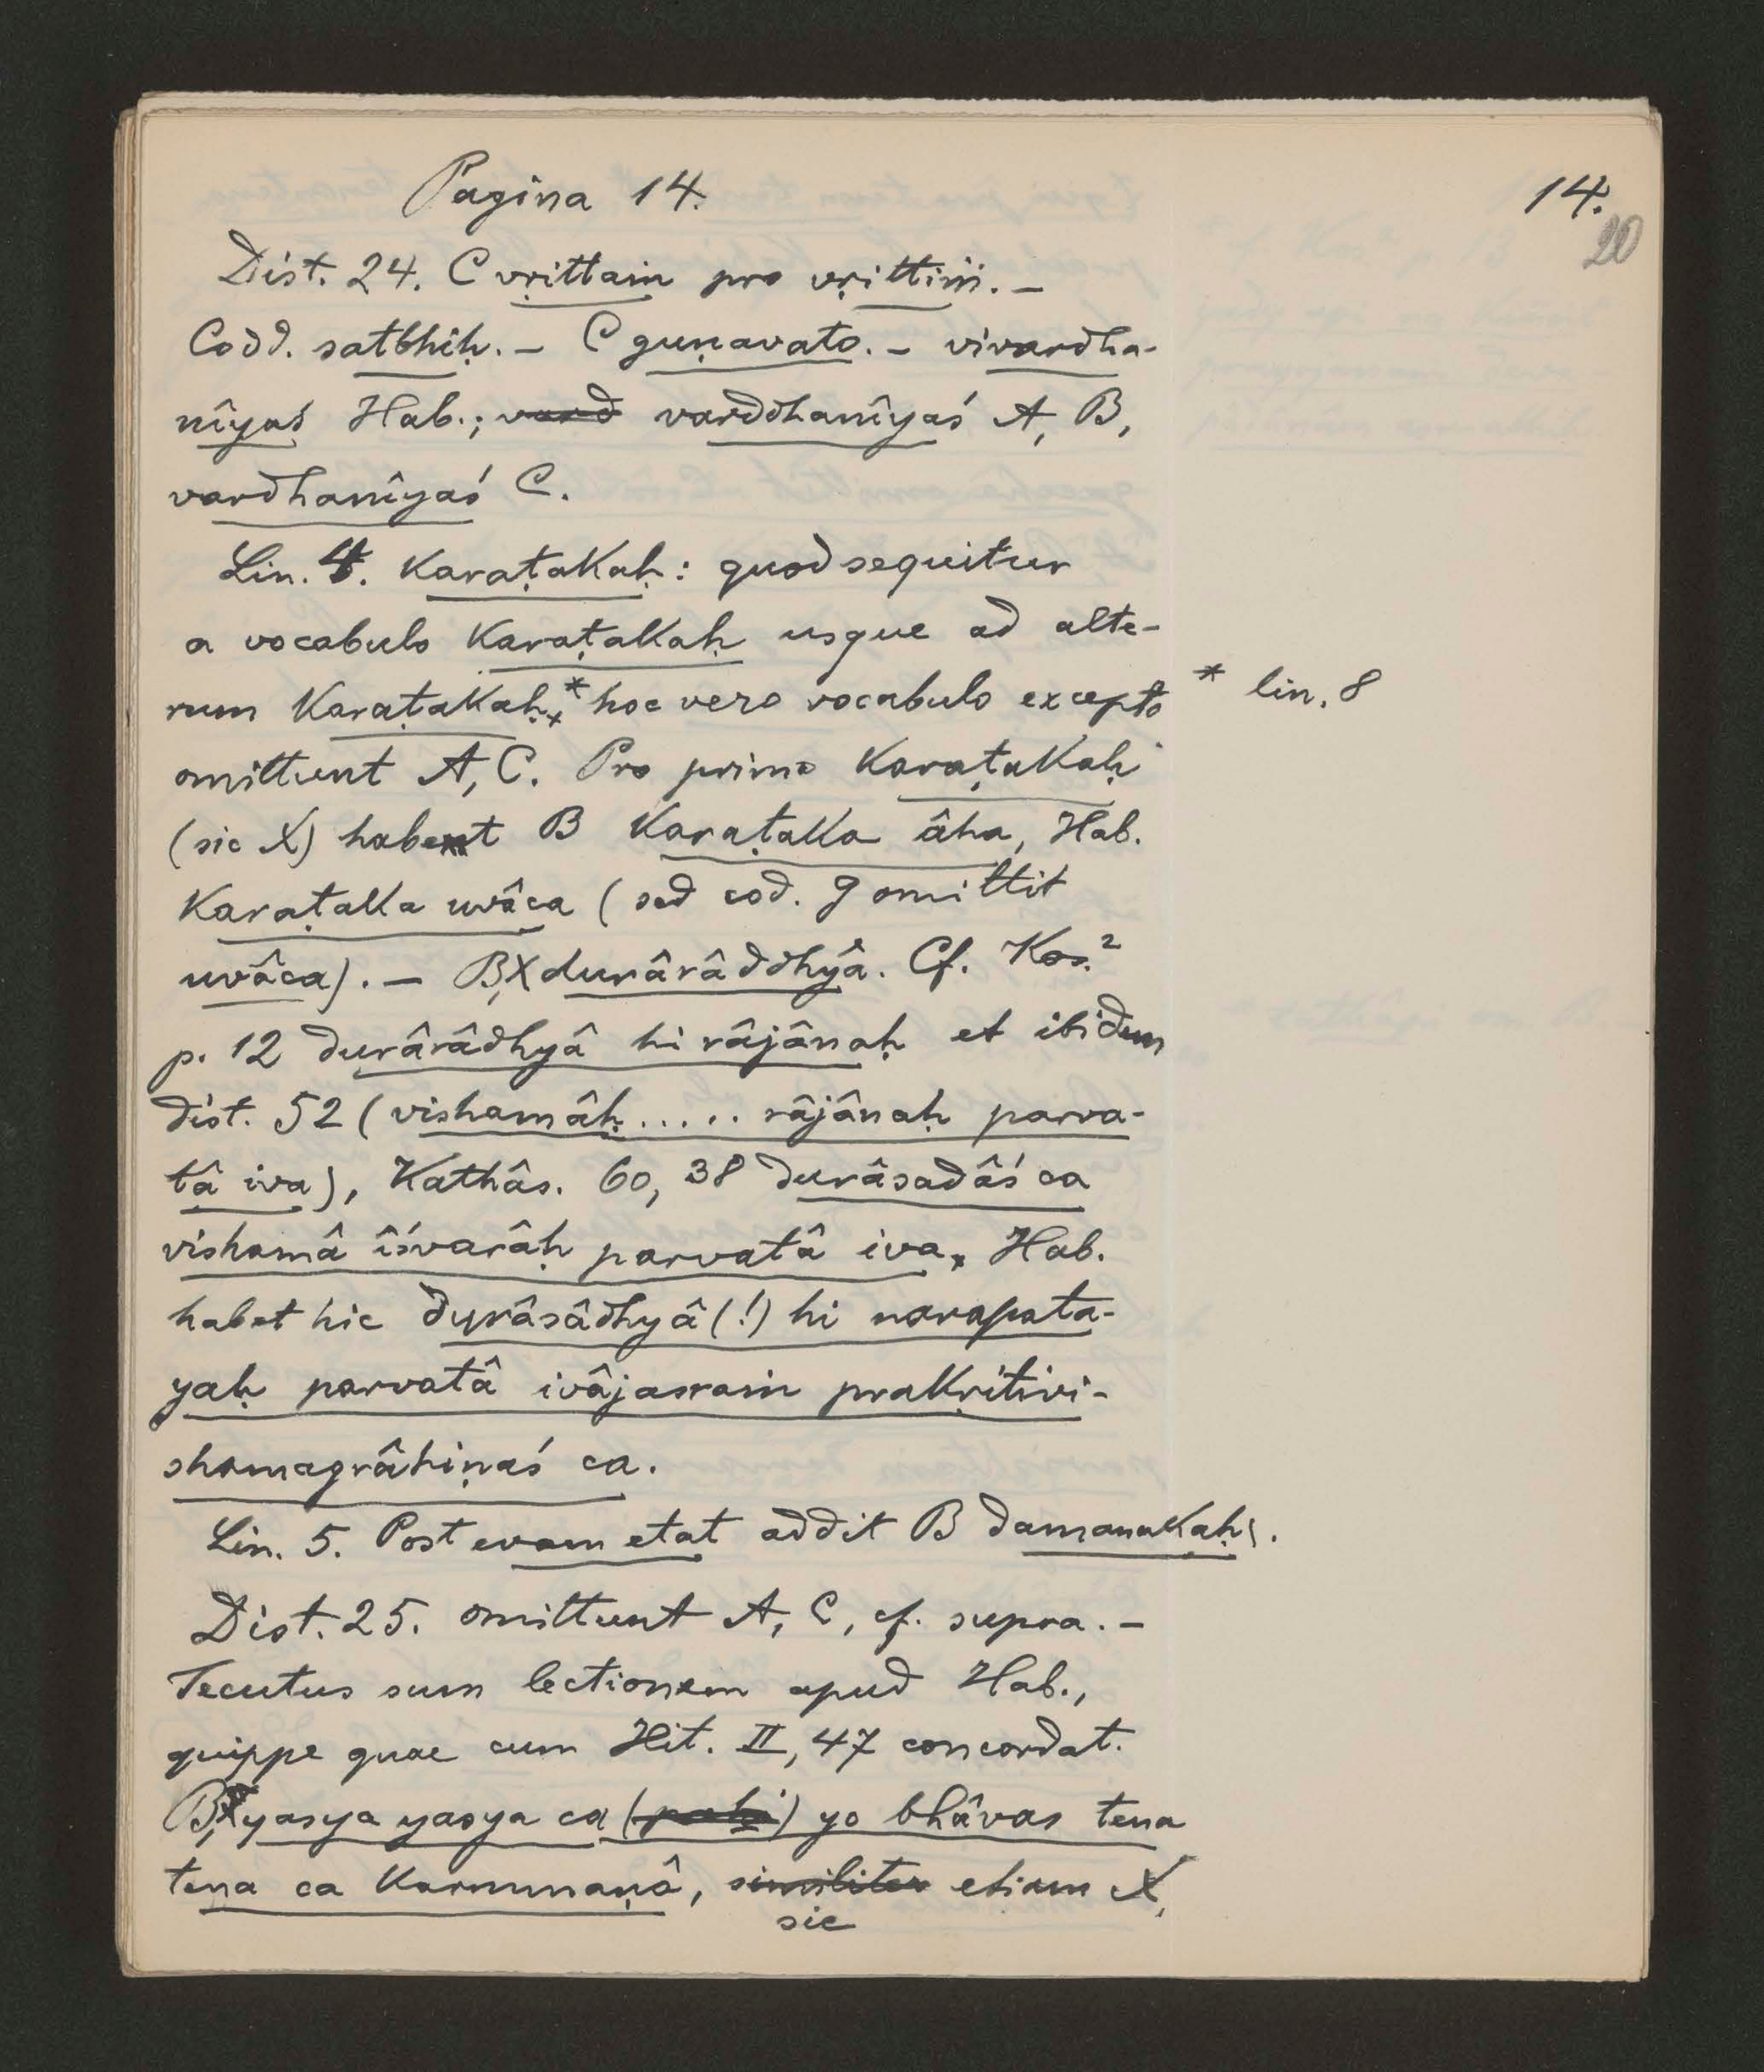 Pagina 14.
14.
20
Dist. 24. C vṛittaṁ pro vṛittiṁ. –
Codd. satbhiḥ. – C guṇavato. – vivardha-
nîyaś Hab.; vard varddhanîyaś A, B,
vardhanîyaś C.
Lin. 4. Karaṭakaḥ: quod sequitur
a vocabulo Karaṭakaḥ usque ad alte-
rum Karaṭakaḥ,* hoc vero vocabulo excepto
* lin. 8
omittunt A, C. Pro primo Karaṭakaḥ
(sic X) habet B Karaṭaka âha, Hab.
Karaṭaka uvâca (sed cod. g omittit
uvâca). – B, X durârâddhyâ. Cf. Kos.²
p. 12 durârâdhyâ hi râjânaḥ et ibidem
dist. 52 (vishamâḥ..... râjânaḥ parva-
tâ iva), Kathâs. 60, 38 durâsadâś ca
vishamâ îśvarâḥ parvatâ iva. Hab.
habet hic durâsâdhyâ (!) hi narapata-
yaḥ parvatâ ivâjasraṁ prakṛitivi-
shamagrâhiṇaś ca.
Lin. 5. Post evam etat addit B damanakaḥ.
Dist. 25. omittunt A, C, cf. supra. –
Secutus sum lectionem apud Hab.,
quippe quae cum Hit. II, 47 concordat.
B, X yasya yasya ca () yo bhâvas tena
tena ca karmmaṇâ, similiter etiam X,
sic